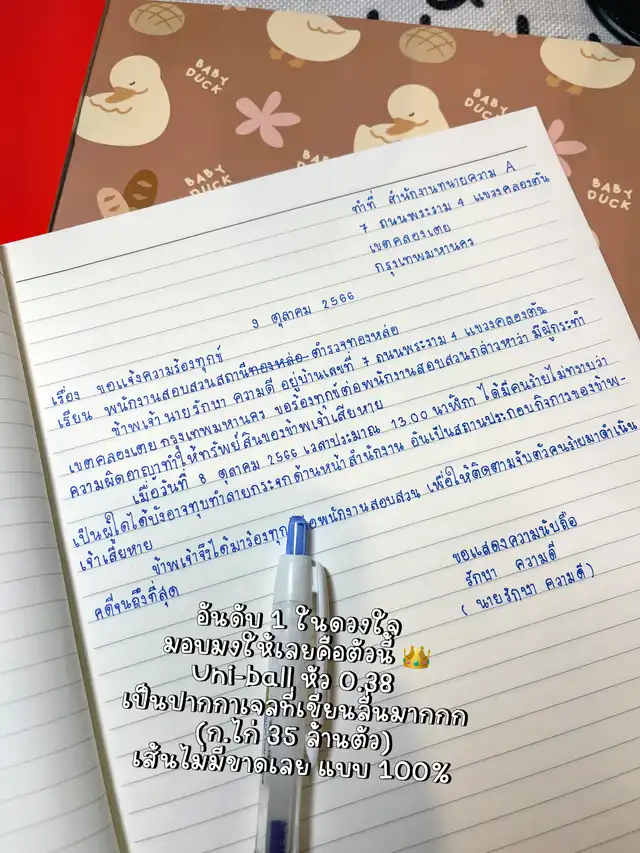 BABY DUCK
BABY DUCK
BABY DUCK
BABY DUCK
ทำที่ สำนักงานทนายความ A
7 ถนนพระราม 4 แขวงคลองตัน
เขตคลองเตย
กรุงเทพมหานคร
9 ตุลาคม 2566
เรื่อง ขอแจ้งความร้องทุกข์
เรียน พนักงานสอบสวนสถานีทองหล่อ ตำรวจทองหล่อ
ข้าพเจ้า นายรักษา ความดี อยู่บ้านเลขที่ 7 ถนนพระราม 4 แขวงคลองตัน
เขตคลองเตย กรุงเทพมหานคร ขอร้องทุกข์ต่อพนักงานสอบสวนกล่าวหาว่า มีผู้กระทำ
ความผิดอาญาทำให้ทรัพย์สินของข้าพเจ้าเสียหาย
เมื่อวันที่ 8 ตุลาคม 2566 เวลาประมาณ 13.00 นาฬิกา ได้มีคนร้ายไม่ทราบว่า
เป็นผู้ใดได้บังอาจทุบทำลายกระจกด้านหน้าสำนักงาน อันเป็นสถานประกอบกิจการของข้าพ-
เจ้าเสียหาย
ข้าพเจ้าจึงได้มาร้องทุก อพนักงานสอบสวน เพื่อให้ติดตามจับตัวคนร้ายมาดำเนิน
คดีจนถึงที่สุด
ขอแสดงความนับถือ
รักษา ความดี
( นายรักษา ความดี )
อันดับ 1 ในดวงใจ
มอบมงให้เลยคือตัวนี้ 👑
Uni-ball หัว 0.38
เป็นปากกาเจลที่เขียนลื่นมากกก
(ก.ไก่ 35 ล้านตัว)
เส้นไม่มีขาดเลย แบบ 100%